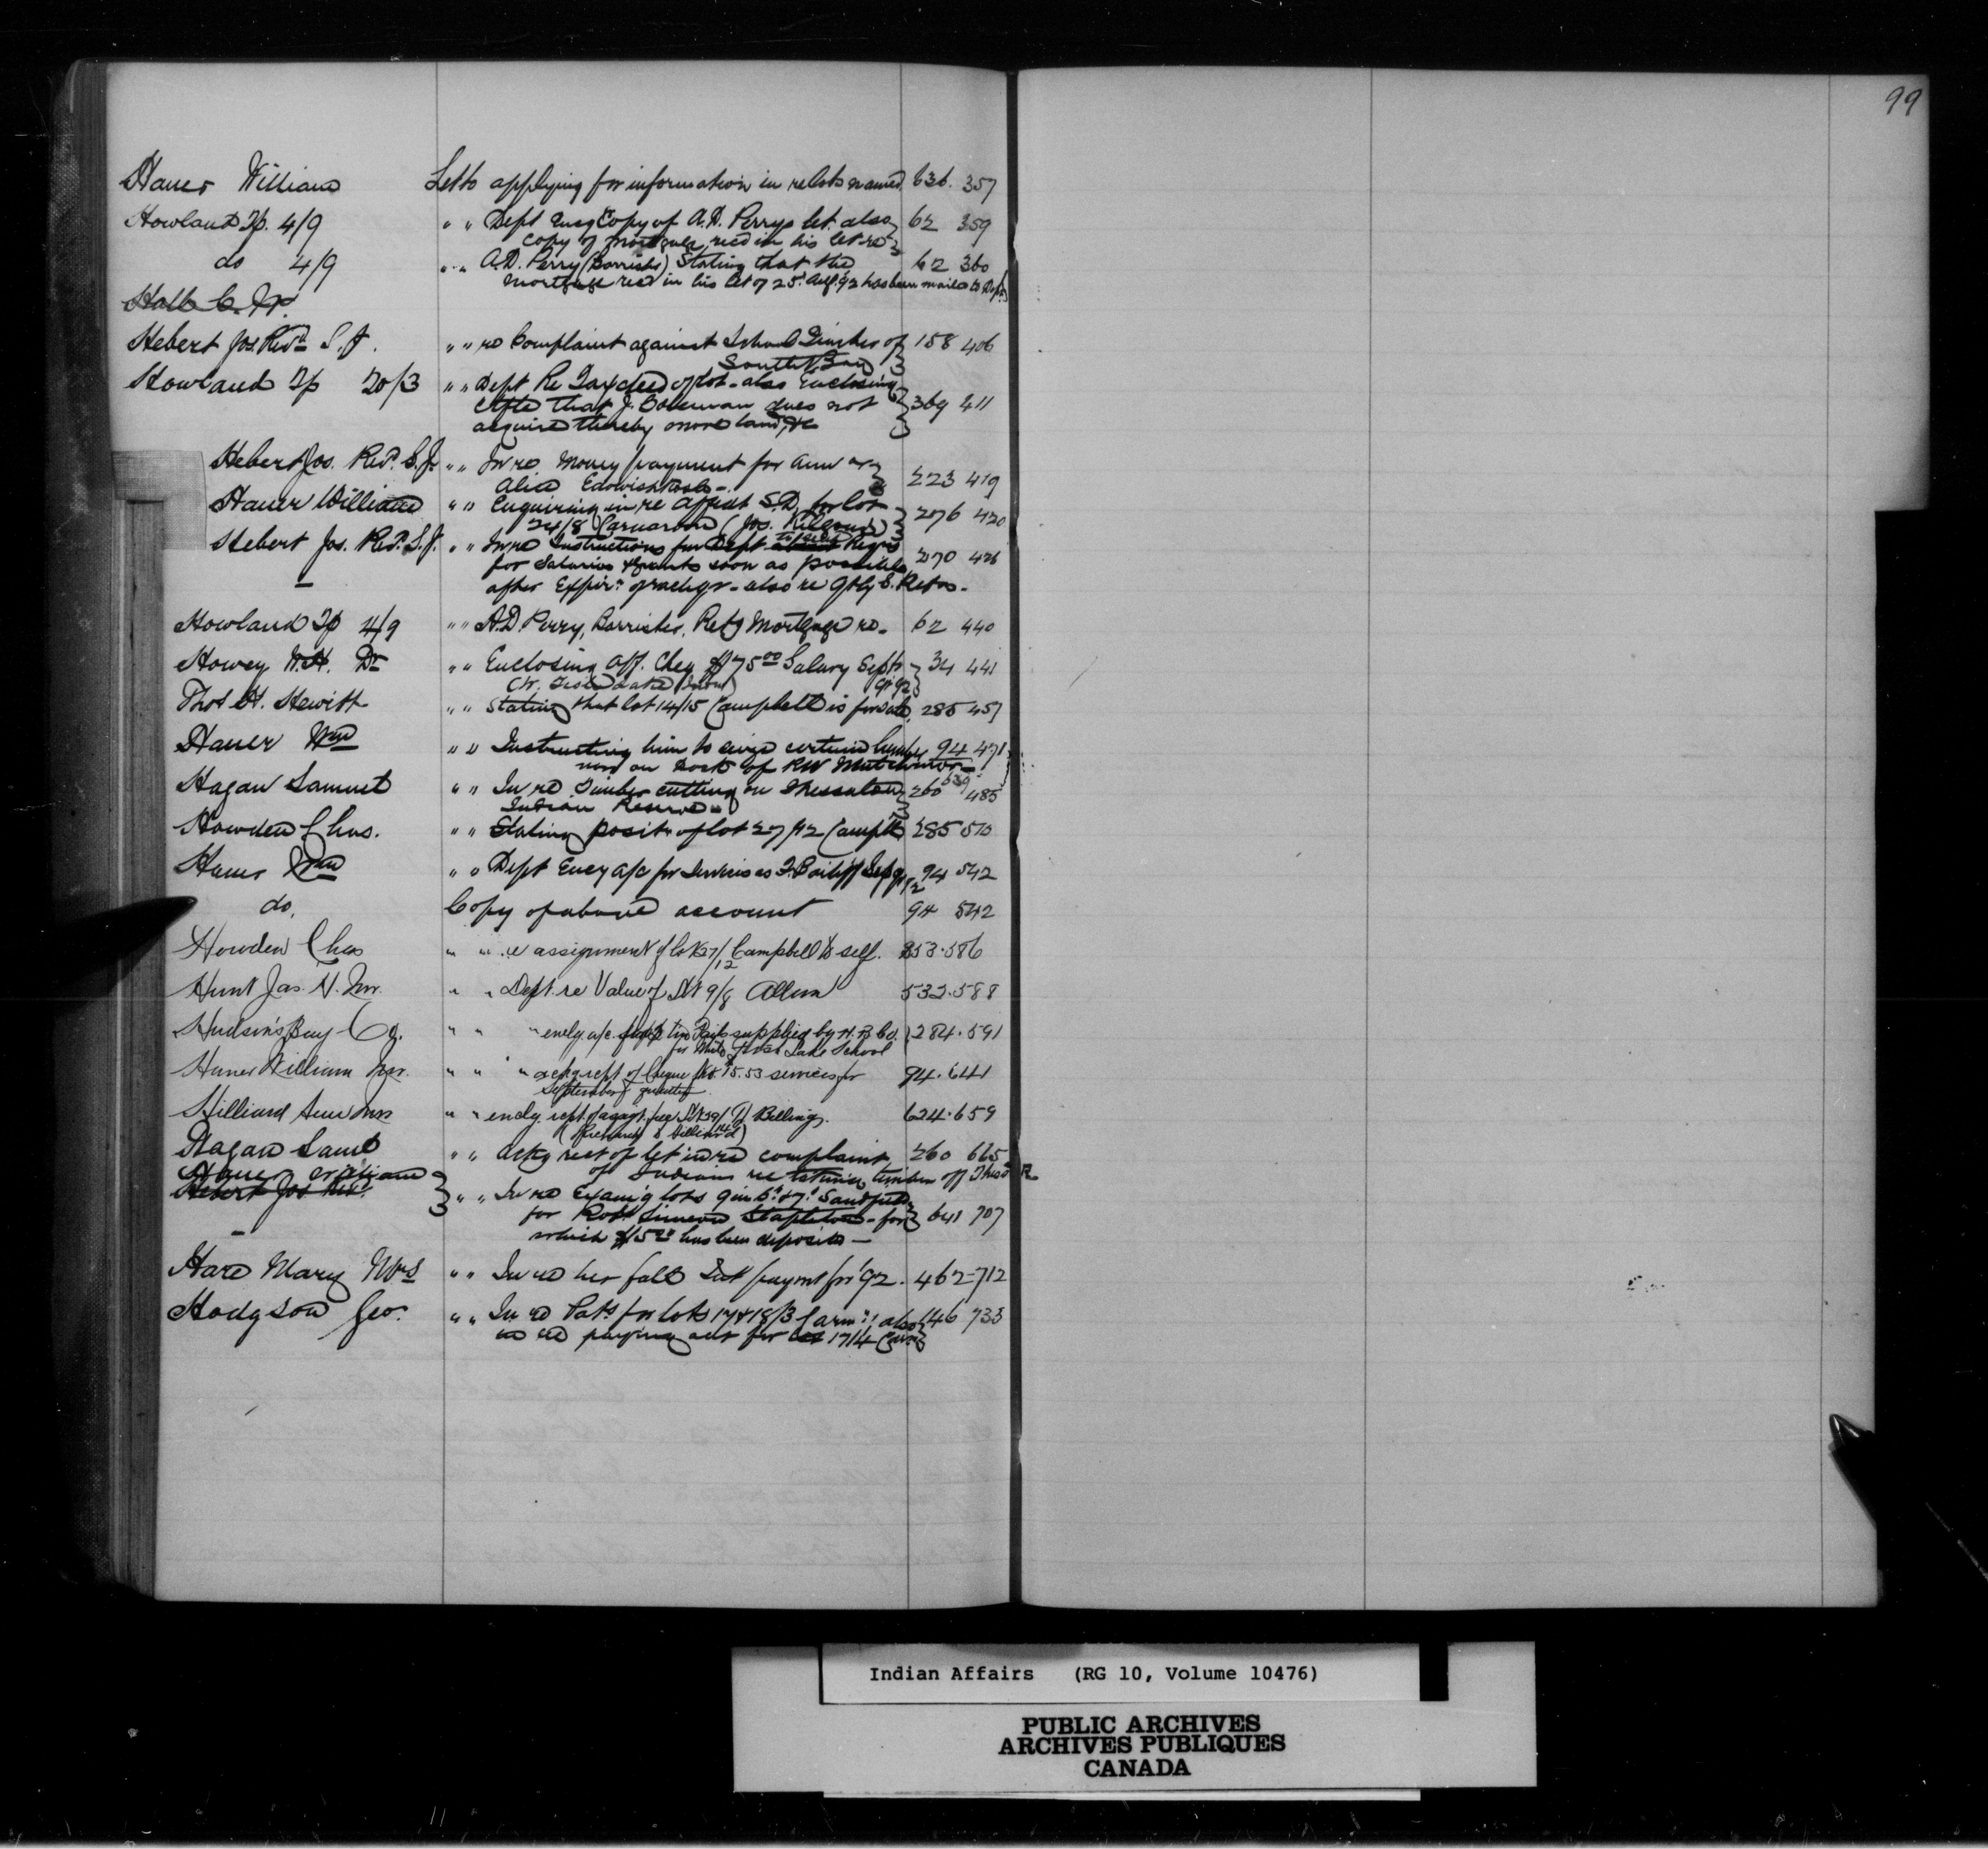 99
William Let to applying for information in re lots named 636. 357
Howland Tp. 4/9 " " Dept Encg Copy of A.D. Perrys let. also 62 359
copy of mortgage recd in his let re
do 4/9 " " A.D. Perry (Barrister) Stating that the 62 360
mortgage recd in his let of 25 92 has been mailed to Dept
Hall C.
Hebert Jos Revd S.J. " " re Complaint against School Teacher of 158 406
South Bay
Howland Tp 20/3 " " Dept Re Tax deed of lot - also Enclosing
that J. does not 369 411
acquire thereby more land, &c
Hebert Jos. Revd. S.J. " " In re Money payment for
223 419
William " " Enquiring in re S.D. for lot
24/8 Carnarvon (Jos. Kilgour) 276 420
Hebert Jos. Revd. S.J. " " In re Instructions fm Dept
for Salaries soon as possible 270 426
after Expirn of - also re Qtly S. Retns.
Howland Tp 4/9 " " A.D. Perry, Barrister, Retg Mortgage re - 62 440
Howey W.H. Dr " " Enclosing Off. Cheq $75 00 Salary Sept 34 441
Thos H. Hewitt " " Stating that lot 14/15 Campbell is for sale. 285 457
Wm " " Instructing him to seize certain lumber 94 471
now on Dock of RW
Hagan Samuel " " In re Timber cutting on Thessalon 260 485
Indian Reserve
Howden Chas. " " Stating posit. of lot 27/12 Campll 285 510
Wm " " Dept Encg a/c for Services as F. Bailiff 94 542
do. Copy of above account 94 542
Howden Chas " " re assignment of lot 27/12 Campbell to self. 253.586
Hunt Jas. N. Mr. " " Dept. re Value of Lt 9/8 Allan 532.588
Hudson's Bay Co. " " " enclg. a/c. for two Pails supplied by H.B Co. 284.591
for Lake School
William Mr. " " " ackg rcpt of Cheque for 15.53 services for 94.641
September quarter
Hilliard Mr " " enclg. rcpt. Billings. 624.659
Hagan Saml " " Ackg rect of let in re complaint 260 665
of Indians re timber off Thess R
William
Hebert Jos Revd. " " In re Examg lots 9 in 6 & 7 Sandfield
for Robt Simeon Stapleton - for 641 707
which $5 00 has been deposited -
Hare Mary Mrs " " In re her fall Int paymt for '92. 462-712
Hodgson Geo. " " In re Pats for lots 17 & 18/3 Carnn; also 146 733
in re paying for lot 17/4 Carn
Indian Affairs (RG 10, Volume 10476)
PUBLIC ARCHIVES
ARCHIVES PUBLIQUES
CANADA